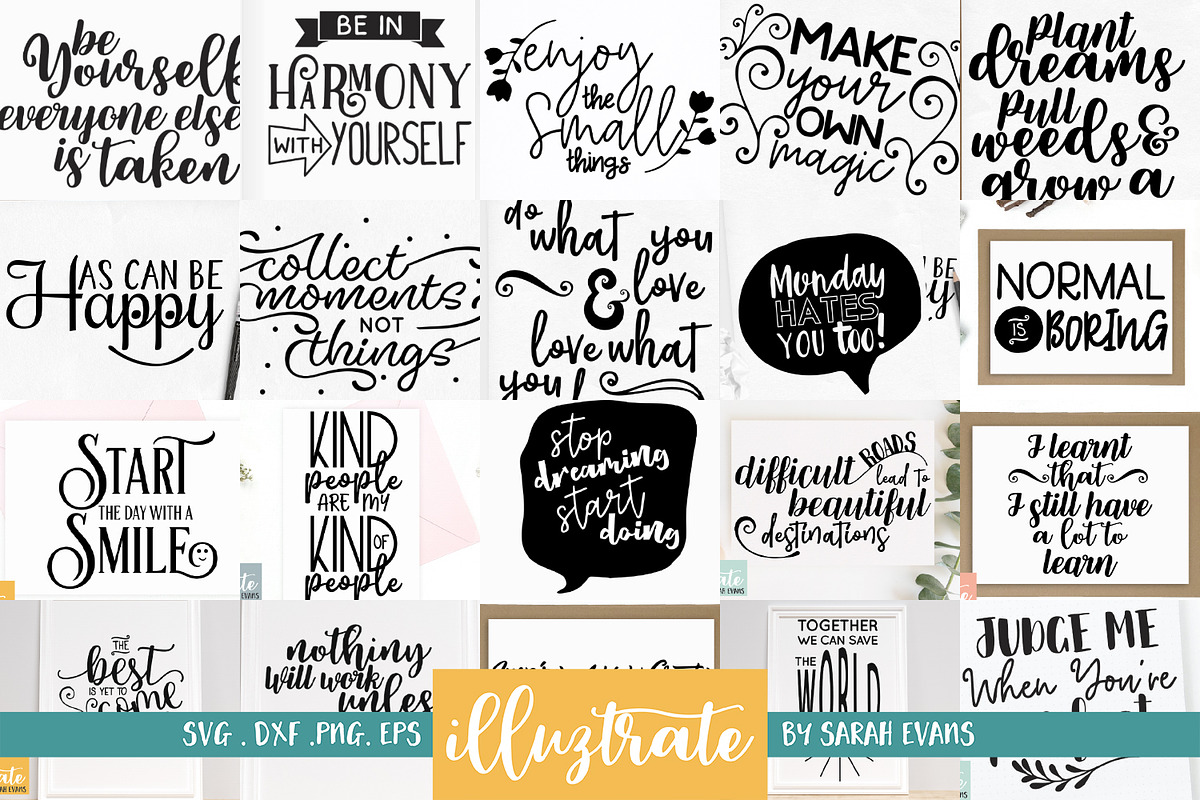 be
Yourself
everyone else
is taken
BE IN
HARMONY
WITH YOURSELF
enjoy
the
Small
things
MAKE
your
OWN
magic
plant
dreams
pull
weeds &
grow a
HAS CAN BE
Happy
collect
moments
NOT
things
do
what you
& love
love what
you
Monday
HATES
YOU too!
BE
y
NORMAL
IS BORING
START
THE DAY WITH A
SMILE
KIND
people
ARE MY
KIND OF
people
stop
dreaming
start
doing
difficult ROADS
lead to
beautiful
destinations
I learnt
that
I still have
a lot to
learn
ate
EVANS
ate
H EVANS
THE
best
IS YET TO
come
nothing
will work
unless
TOGETHER
WE CAN SAVE
THE
WORLD
JUDGE ME
When You're
SVG . DXF .PNG. EPS
illuztrate
BY SARAH EVANS
ate
AH EVANS